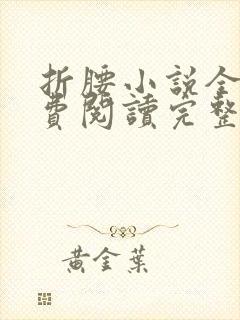 折腰小説全
費閱讀完整
黃金葉